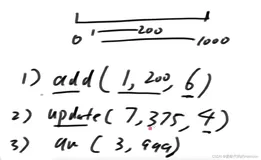 1 200
0 1000
1) add ( 1, 200, 6 )
2) update ( 7, 375, 4 )
3) qu ( 3, 999 )